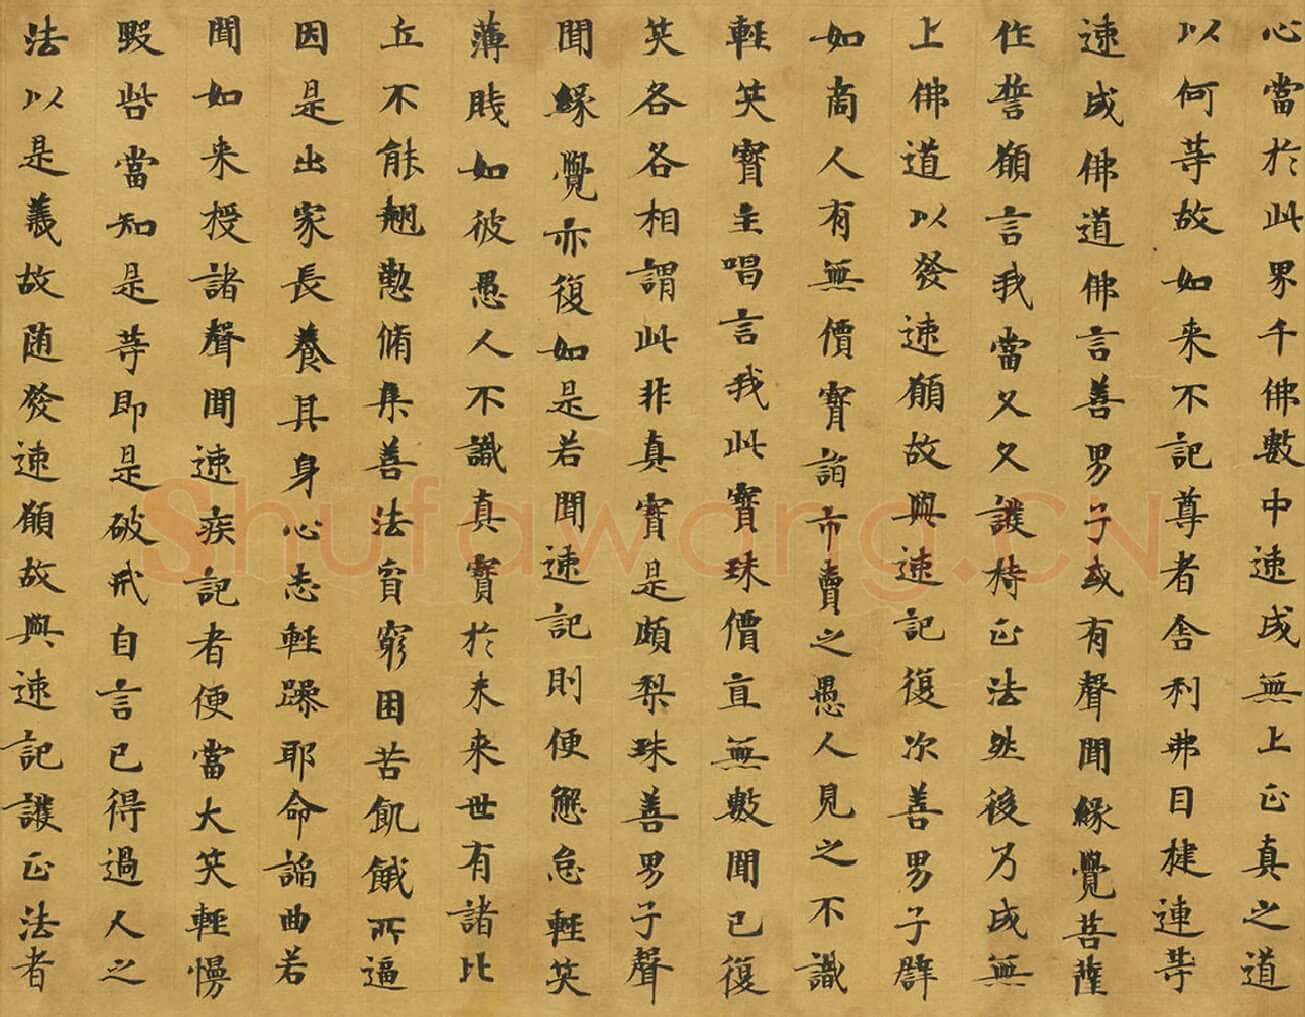 心當於此界千佛數中速成無上正真之道
以何等故如来不記尊者舎利弗目揵連等
速成佛道佛言善男子或有聲聞緣覺菩薩
作誓願言我當久久護持正法然後乃成無
上佛道以發速願故與速記復次善男子譬
如商人有無價寶詣市賣之愚人見之不識
輕笑寶主唱言我此寶珠價直無數聞已復
笑各各相謂此非真寶是頗梨珠善男子聲
聞緣覺亦復如是若聞速記則便懈怠輕笑
薄賎如彼愚人不識真寶於未来世有諸比
丘不能翹懃脩集善法貧窮困苦飢餓所逼
因是出家長養其身心志輕躁耶命謟曲若
聞如来授諸聲聞速疾記者便當大笑輕慢
毀呰當知是等即是破戒自言已得過人之
法以是義故随發速願故與速記護正法者
Shufawang.CN